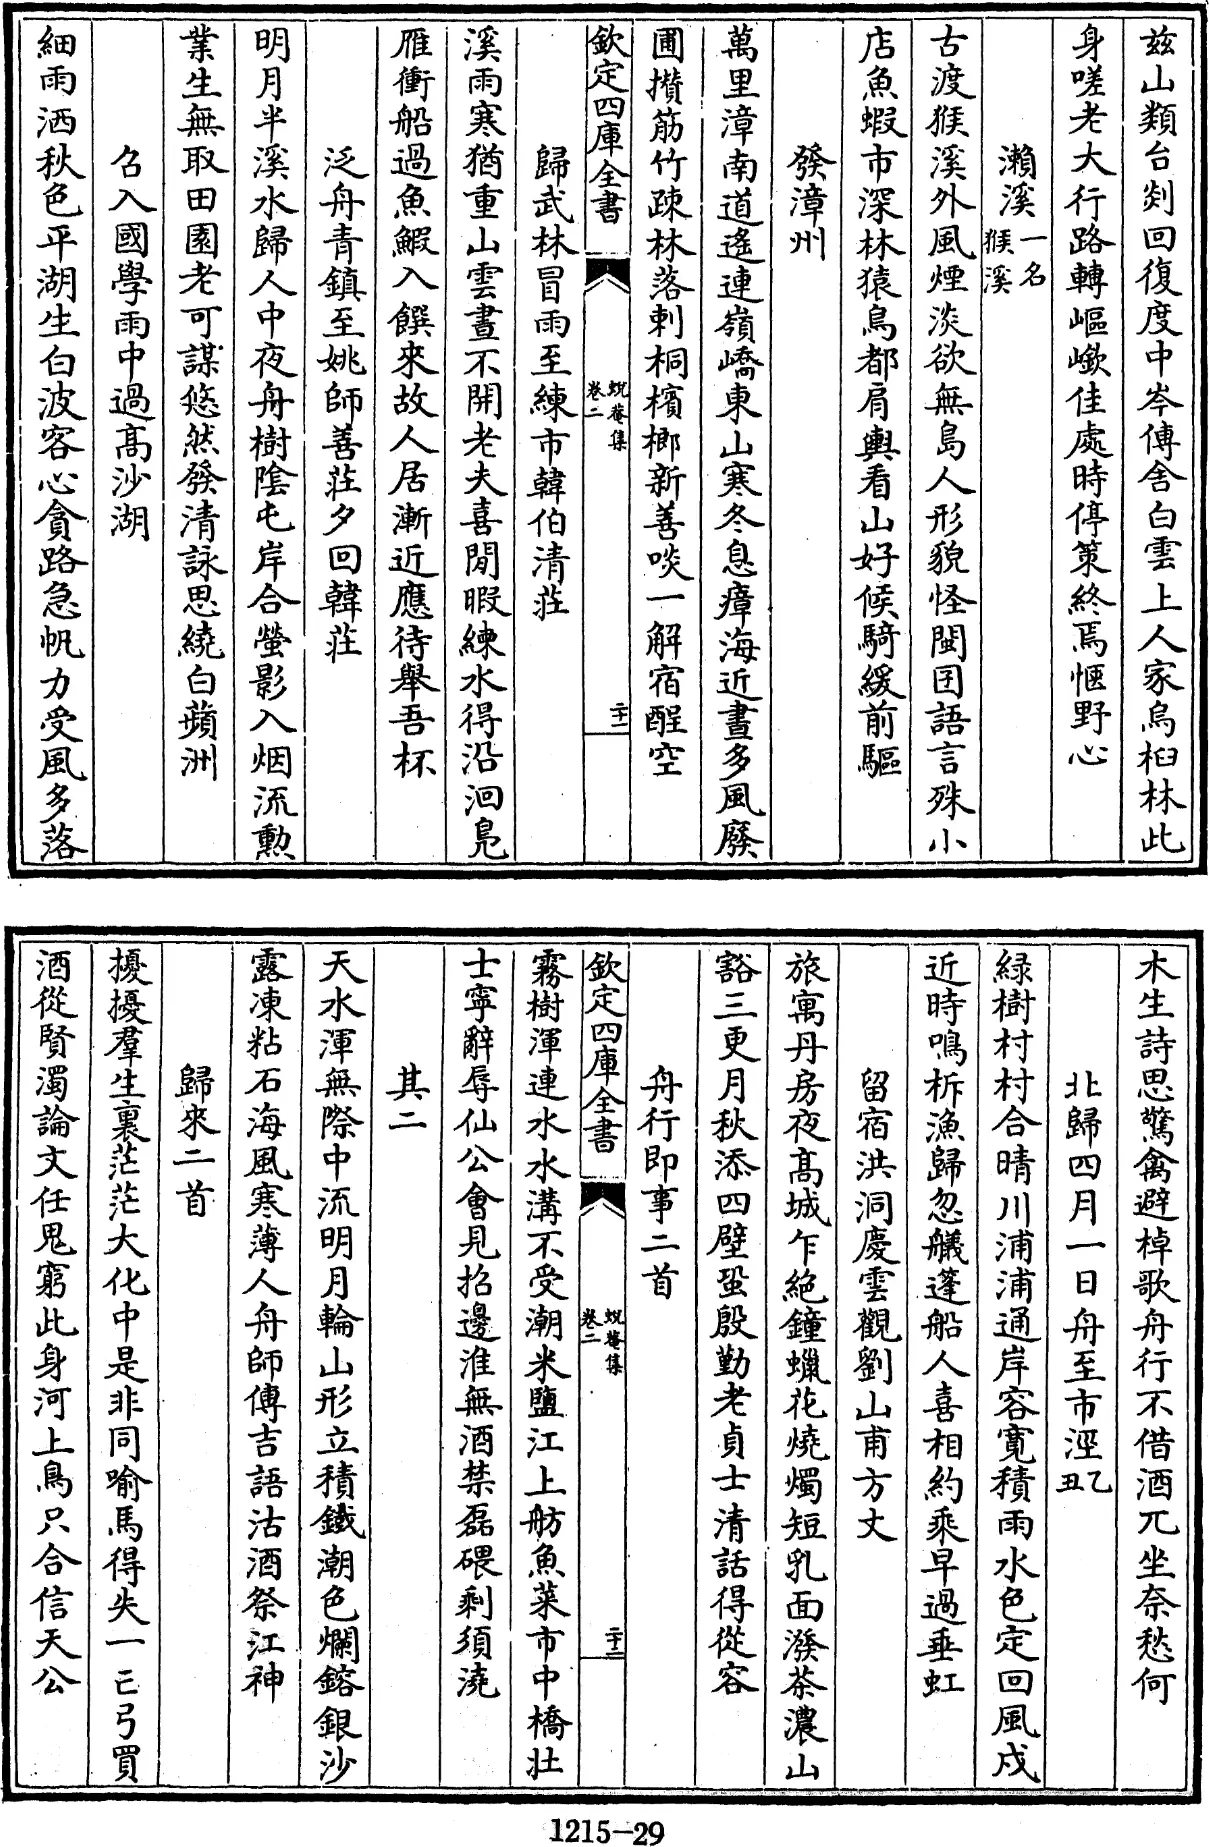 兹山類台剡回復度中岑傅舍白雲上人家烏桕林此
身嗟老大行路轉嶇嶔佳處時停策終焉愜野心
瀨溪一名猴溪
古渡猴溪外風煙淡欲無島人形貌怪閩囝語言殊小
店魚蝦市深林猿鳥都肩輿看山好候騎緩前驅
發漳州
萬里漳南道遙連嶺嶠東山寒冬息瘴海近晝多風廢
圃攅筋竹疎林落刺桐檳榔新善啖一解宿酲空
欽定四庫全書
蛻菴集
卷二
二十一
歸武林冒雨至練市韓伯清莊
溪雨寒猶重山雲晝不開老夫喜閒暇練水得沿洄鳬
雁衝船過魚鰕入饌來故人居漸近應待舉吾杯
泛舟青鎮至姚師善莊夕回韓莊
明月半溪水歸人中夜舟樹陰屯岸合螢影入烟流勲
業生無取田園老可謀悠然發清詠思繞白蘋洲
名入國學雨中過高沙湖
細雨洒秋色平湖生白波客心貪路急帆力受風多落
木生詩思驚禽避棹歌舟行不借酒兀坐奈愁何
北歸四月一日舟至市涇乙丑
緑樹村村合晴川浦浦通岸容寛積雨水色定回風戍
近時鳴柝漁歸忽艤蓬船人喜相約乘早過垂虹
留宿洪洞慶雲觀劉山甫方丈
旅寓丹房夜高城乍絶鐘蠟花燒燭短乳面潑茶濃山
豁三更月秋添四壁蛩殷勤老貞士清話得從容
舟行即事二首
欽定四庫全書
蛻菴集
卷二
二十二
霧樹渾連水水溝不受潮米鹽江上舫魚菜市中橋壯
士寧辭辱仙公會見招邊淮無酒禁磊磈剩須澆
其二
天水渾無際中流明月輪山形立積鐵潮色爛鎔銀沙
露凍粘石海風寒薄人舟師傅吉語沽酒祭江神
歸來二首
擾擾羣生裏茫茫大化中是非同喻馬得失一亡弓買
酒從賢濁論文任鬼窮此身河上鳥只合信天公
1215-29